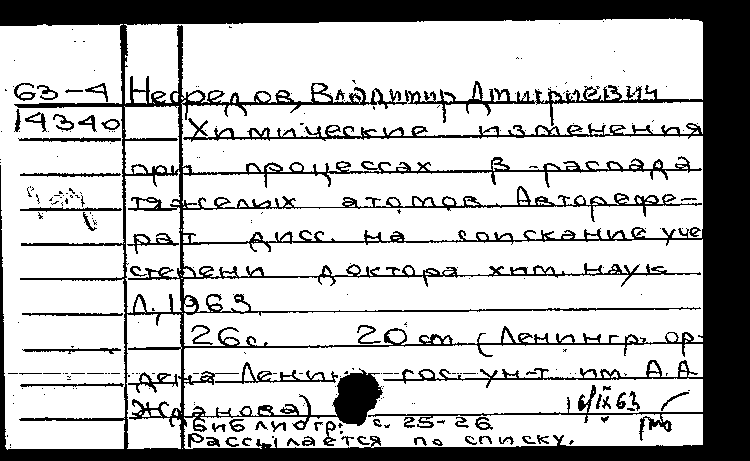 63-4 Нефедов, Владимир Дмитриевич
14340 Химические изменения
при процессах β-распада
тяжелых атомов. Авторефе-
рат дисс. на соискание уче
степени доктора хим. наук
Л., 1963.
26 с. 20 cm (Ленингр. ор-
дена Ленин гос. ун-т им. А.А.
Жданова)
16/IX 63
Библиогр.: с. 25-26.
Рассылается по списку.